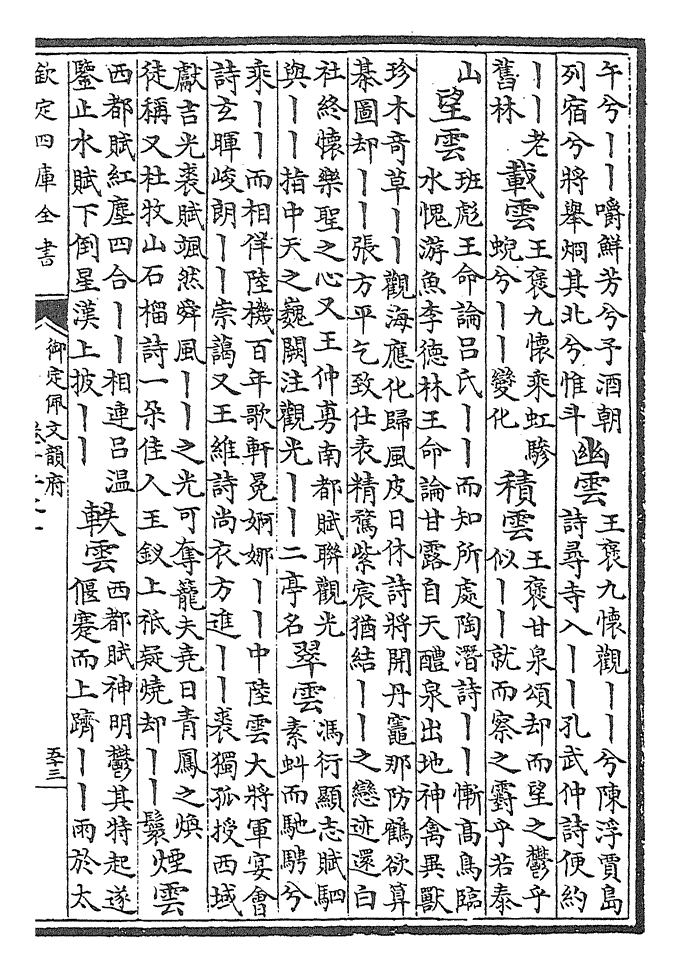 午兮丨丨嚼鮮芳兮予酒朝
列宿兮將舉烱其北兮惟斗
幽雲
王褒九懷觀丨丨兮陳浮賈島
詩尋寺入丨丨孔武仲詩便約
丨丨老
舊林
載雲
王褒九懷乘虹驂
蜺兮丨丨變化
積雲
王褒甘泉頌却而望之鬱乎
似丨丨就而察之霨乎若泰
山
望雲
班彪王命論呂氏丨丨而知所處陶潛詩丨丨慚高鳥臨
水愧游魚李德林王命論甘露自天醴泉出地神禽異獸
珍木竒草丨丨丨觀海應化歸風皮日休詩將開丹竈那防鶴欲算
棊圖却丨丨張方平乞致仕表精騖紫宸猶結丨丨之戀迹還白
社終懷樂聖之心又王仲旉南都賦聯觀光
與丨丨指中天之巍闕注觀光丨丨二亭名
翠雲
馮衍顯志賦駟
素虬而馳騁兮
乘丨丨而相佯陸機百年歌軒冕婀娜丨丨中陸雲大將軍宴會
詩玄暉峻朗丨丨崇藹又王維詩尚衣方進丨丨裘獨孤授西域
獻吉光裘賦颯然舜風丨丨之光可奪籠夫堯日青鳳之煥
徒稱又杜牧山石榴詩一朵佳人玉釵上祇疑燒却丨丨鬟
煙雲
西都賦紅塵四合丨丨相連呂温
鑒止水賦下倒星漢上披丨丨
軼雲
西都賦神明鬱其特起遂
偃蹇而上躋丨丨雨於太
欽定四庫全書
御定佩文韻府
五十三